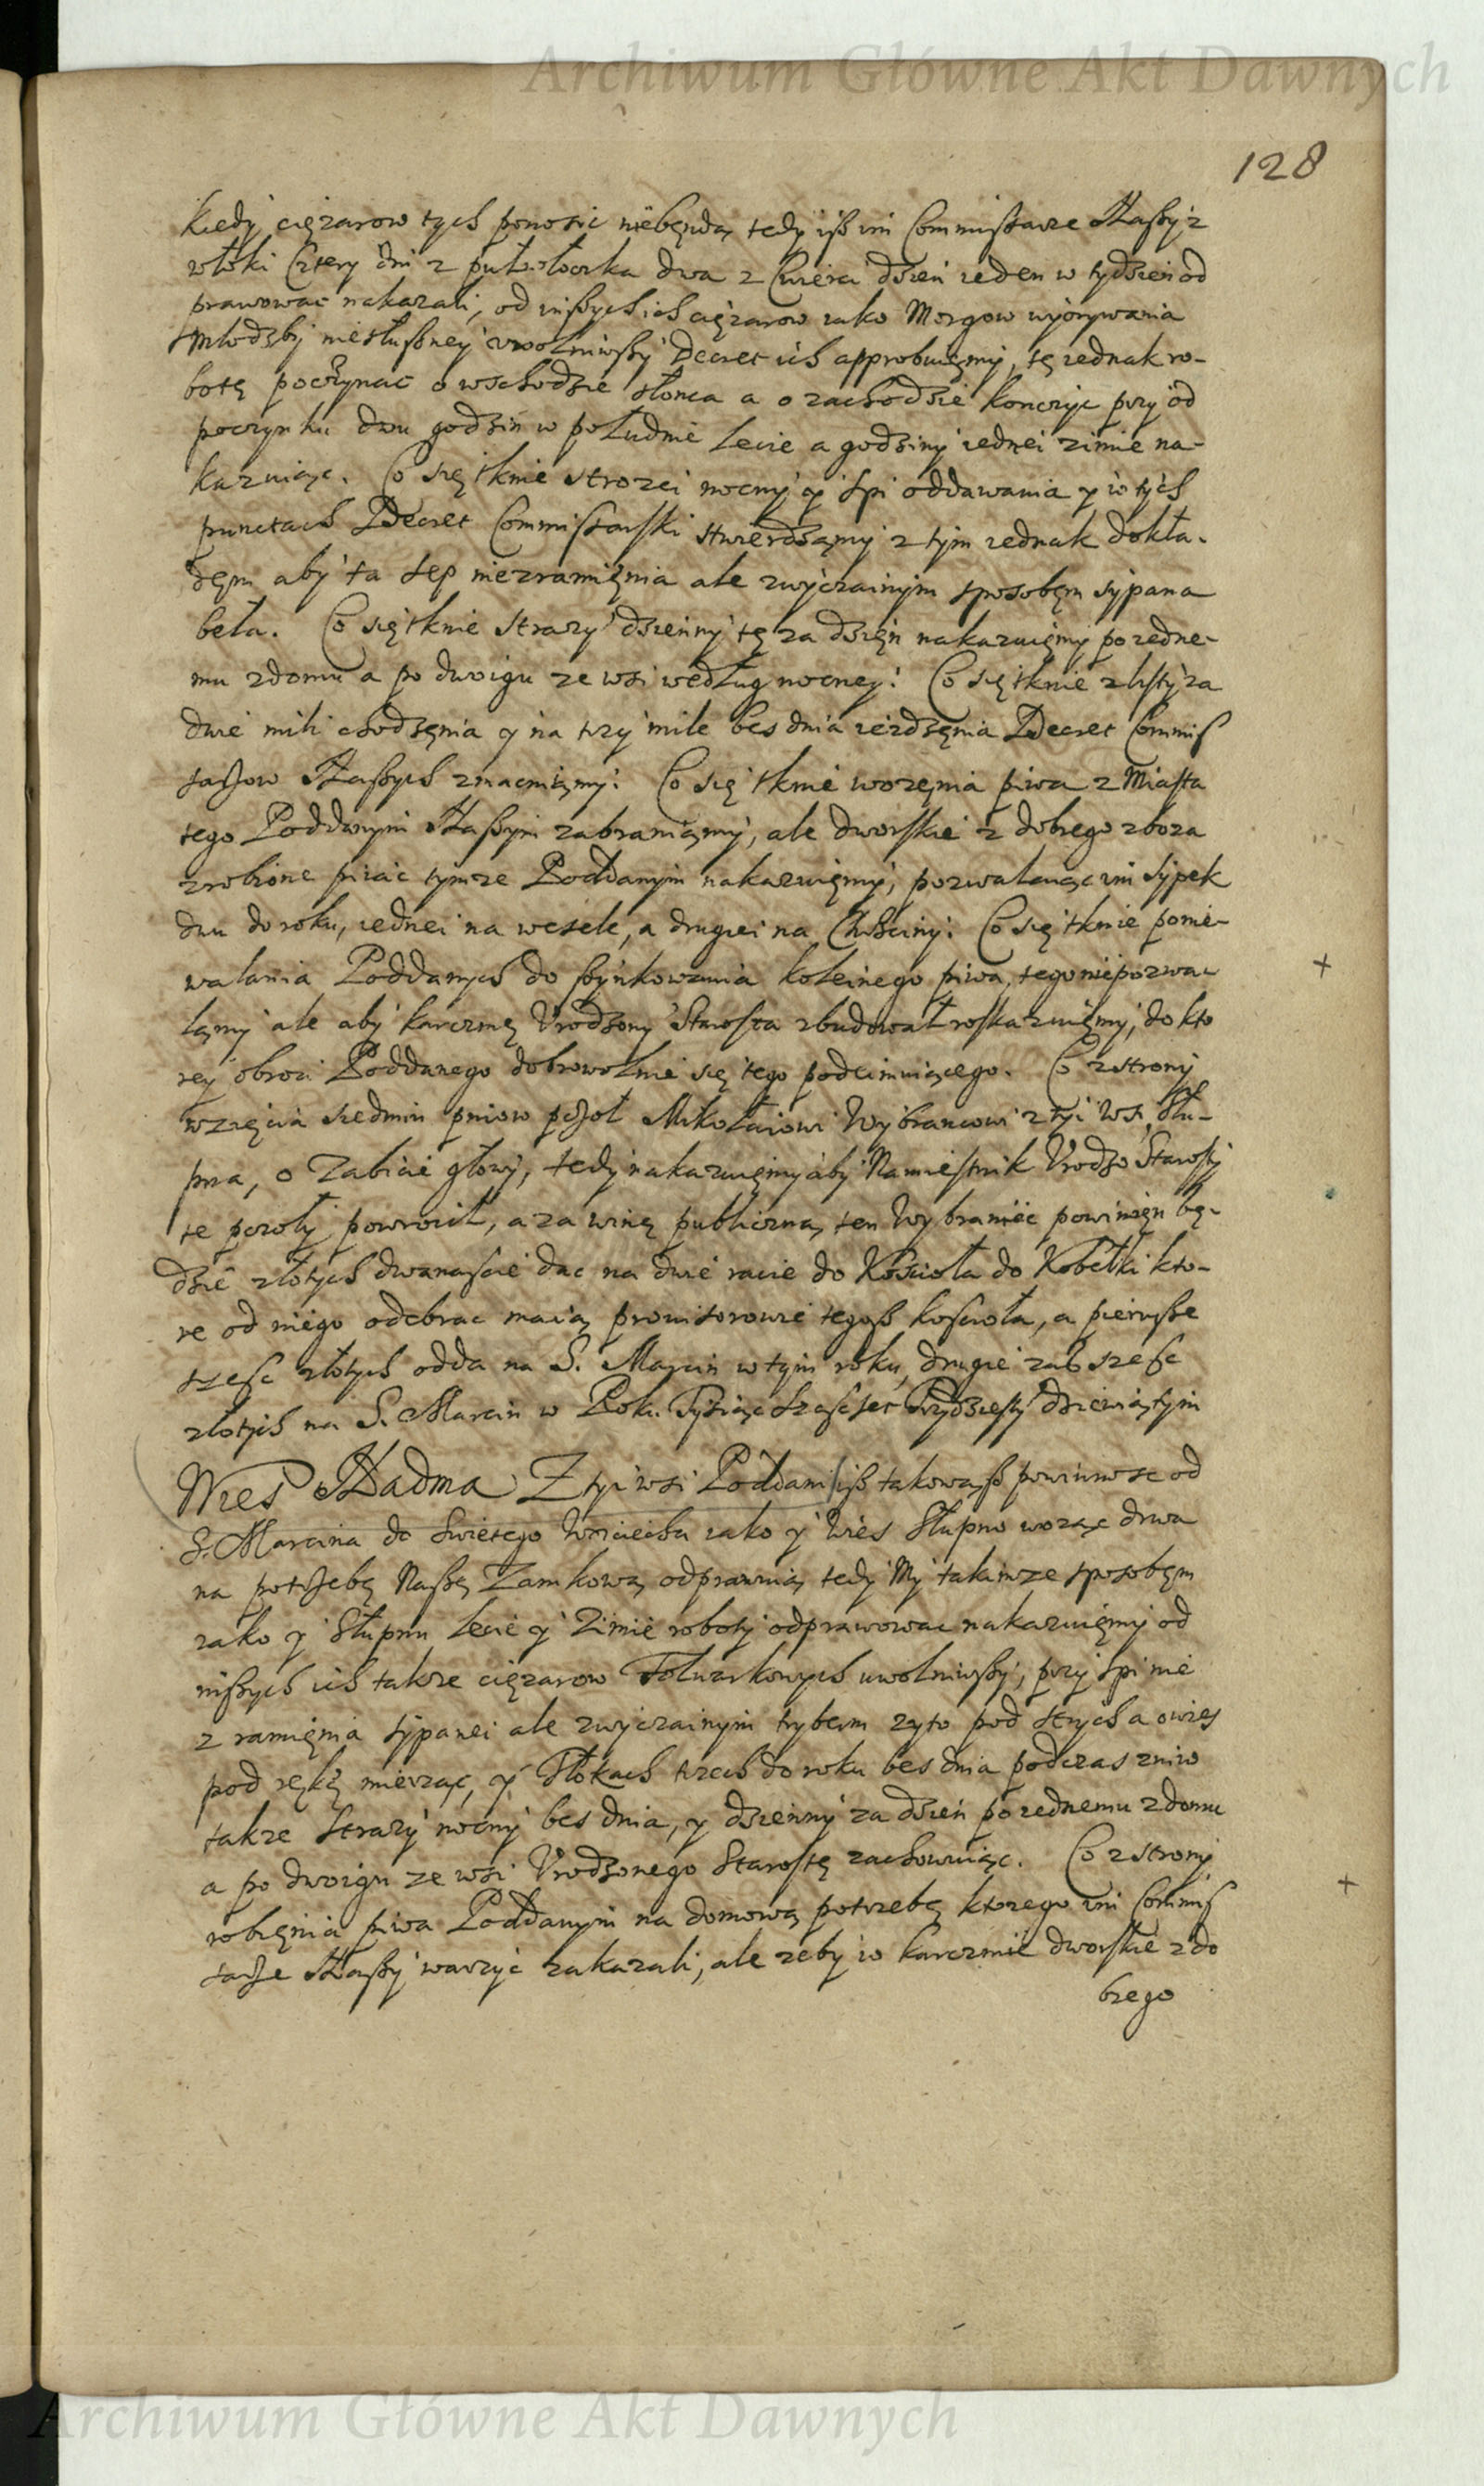 Archiwum Główne Akt Dawnych
128
kiedy ciężarow tych ponosic niebęndą tedy isz im Commissarze Naszy z
włoki Cztery dni z pułwłoczka dwa z Cwierci dzien ieden w tydzien od
prawowac nakazali, od inszych ich ciężarow iako Morgow wyorywania
y Młodzby niesłuszney uwolniwszy Decret ich approbuięmy, tę iednak ro-
botę poczynac o wschodzie słonca a o zachodzie konczyc przy od
poczynku dwu godzin w południe lecie a godziny iednei zimie na-
kazuiąc. Co się tknie strozei nocny y spi oddawania y w tych
punctach Decret Commissarski stwierdzamy z tym iednak dokła-
dęm aby ta sep niezramięnia ale zwyczainym sposobęm sypana
beła. Co się tknie strazy dzienny tę za dzięn nakazuięmy po iedne-
mu zdomu a po dwoigu ze wsi według nocney: Co się tknie z listy za
dwie mili chodzęnia y na trzy mile bes dnia ieżdzęnia Decret Commis
sarzow Naszych zmacniamy: Co się tknie wozęnia piwa z Miasta
tego Poddanym Naszym zabraniamy, ale dworskie z dobrego zboza
zrobione piiac tymze Poddanym nakazuięmy, pozwalaiąc im sypek
dwu do roku, iednei na wesele, a drugiei na Chrzciny: Co się tknie ponie-
walania Poddanych do szynkowania koleinego piwa, tego niepozwa-
lamy ale aby karczmę Urodzony Starosta zbudował roskazuięmy, do kto
rey obroci Poddanego dobrowolnie się tego podeimuiącego. Co z strony
wzięcia siedmiu pniow pszoł Mikołaiowi Wybrancowi z tyi Wsi Słu-
pna, o Zabicie głowy, tedy nakazuięmy aby Namiestnik Urodzo Starosty
te pczoły powrocił, a za winę publiczną ten Wybraniec powinięn bę-
dzie złotych dwanascie dac na dwie racie do Kosciola do Kobełki kto-
re od niego odebrac maią prowisorowie tegosz koscioła, a pierwsze
szesc złotych odda na S. Marcin w tym roku, drugie zas szesc
złotych na S. Marcin w Roku Tysiąc szescset Trzydziesty dziewiątym
Wies Nadma Z tyi wsi Poddani isz takowąsz powinnosc od
S. Marcina do Swietego Woiciecha iako y Wies Słupno wożąc drwa
na potrzebę Naszę Zamkową odprawuią tedy My takimze sposobęm
iako y Słupnu lecie y Zimie roboty odprawowac nakazuięmy od
inszych ich takze ciężarow Folwarkowych uwolniwszy, przy spi nie
z ramięnia sypanei ale zwyczainym trybęm zyto pod strych a owies
pod rękę mierząc, y Tłokach trzech do roku bes dnia podczas zniw
takze strazy nocny bes dnia, y dzienny za dzien po iednemu zdomu
a po dwoigu ze wsi Urodzonego Starostę zachowuiąc. Co z strony
robięnia piwa Poddanym na domową potrzebę ktorego im Commis
sarze Naszy warzyc zakazali, ale zeby w karczmie dworskie z do
brego
Archiwum Główne Akt Dawnych